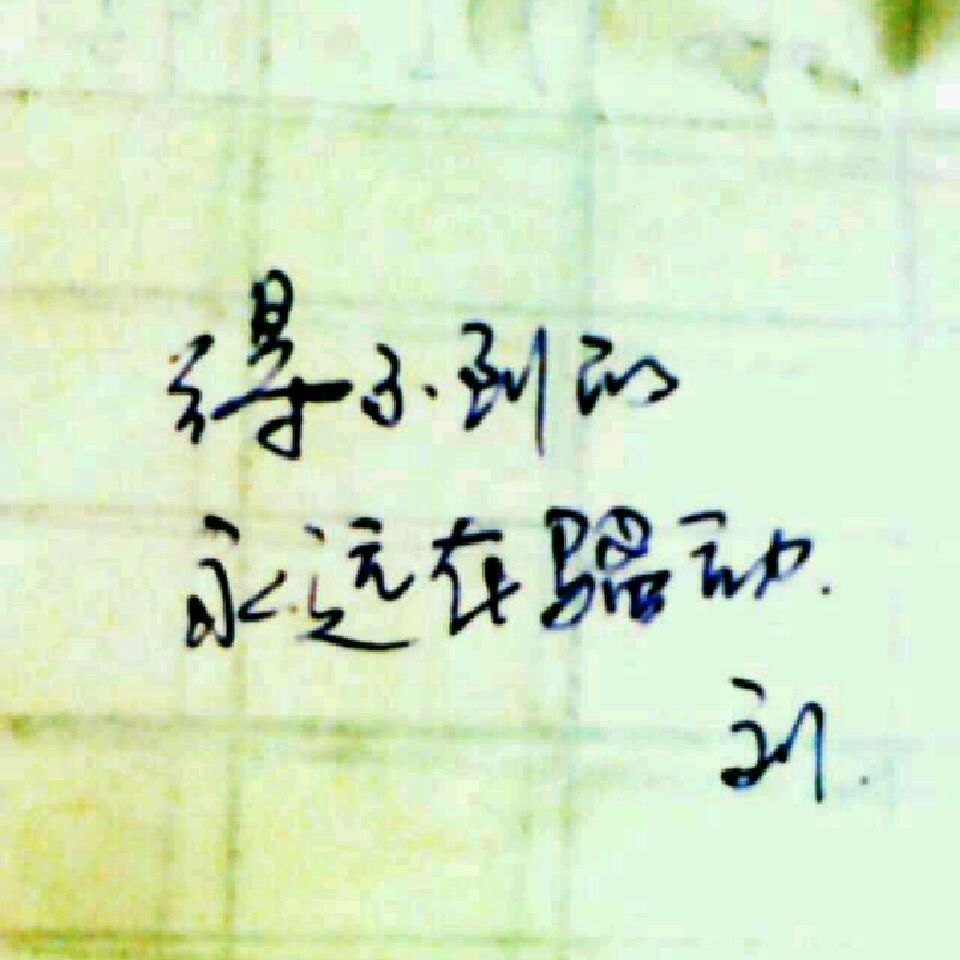 得不到的
永远在骚动.
刘.